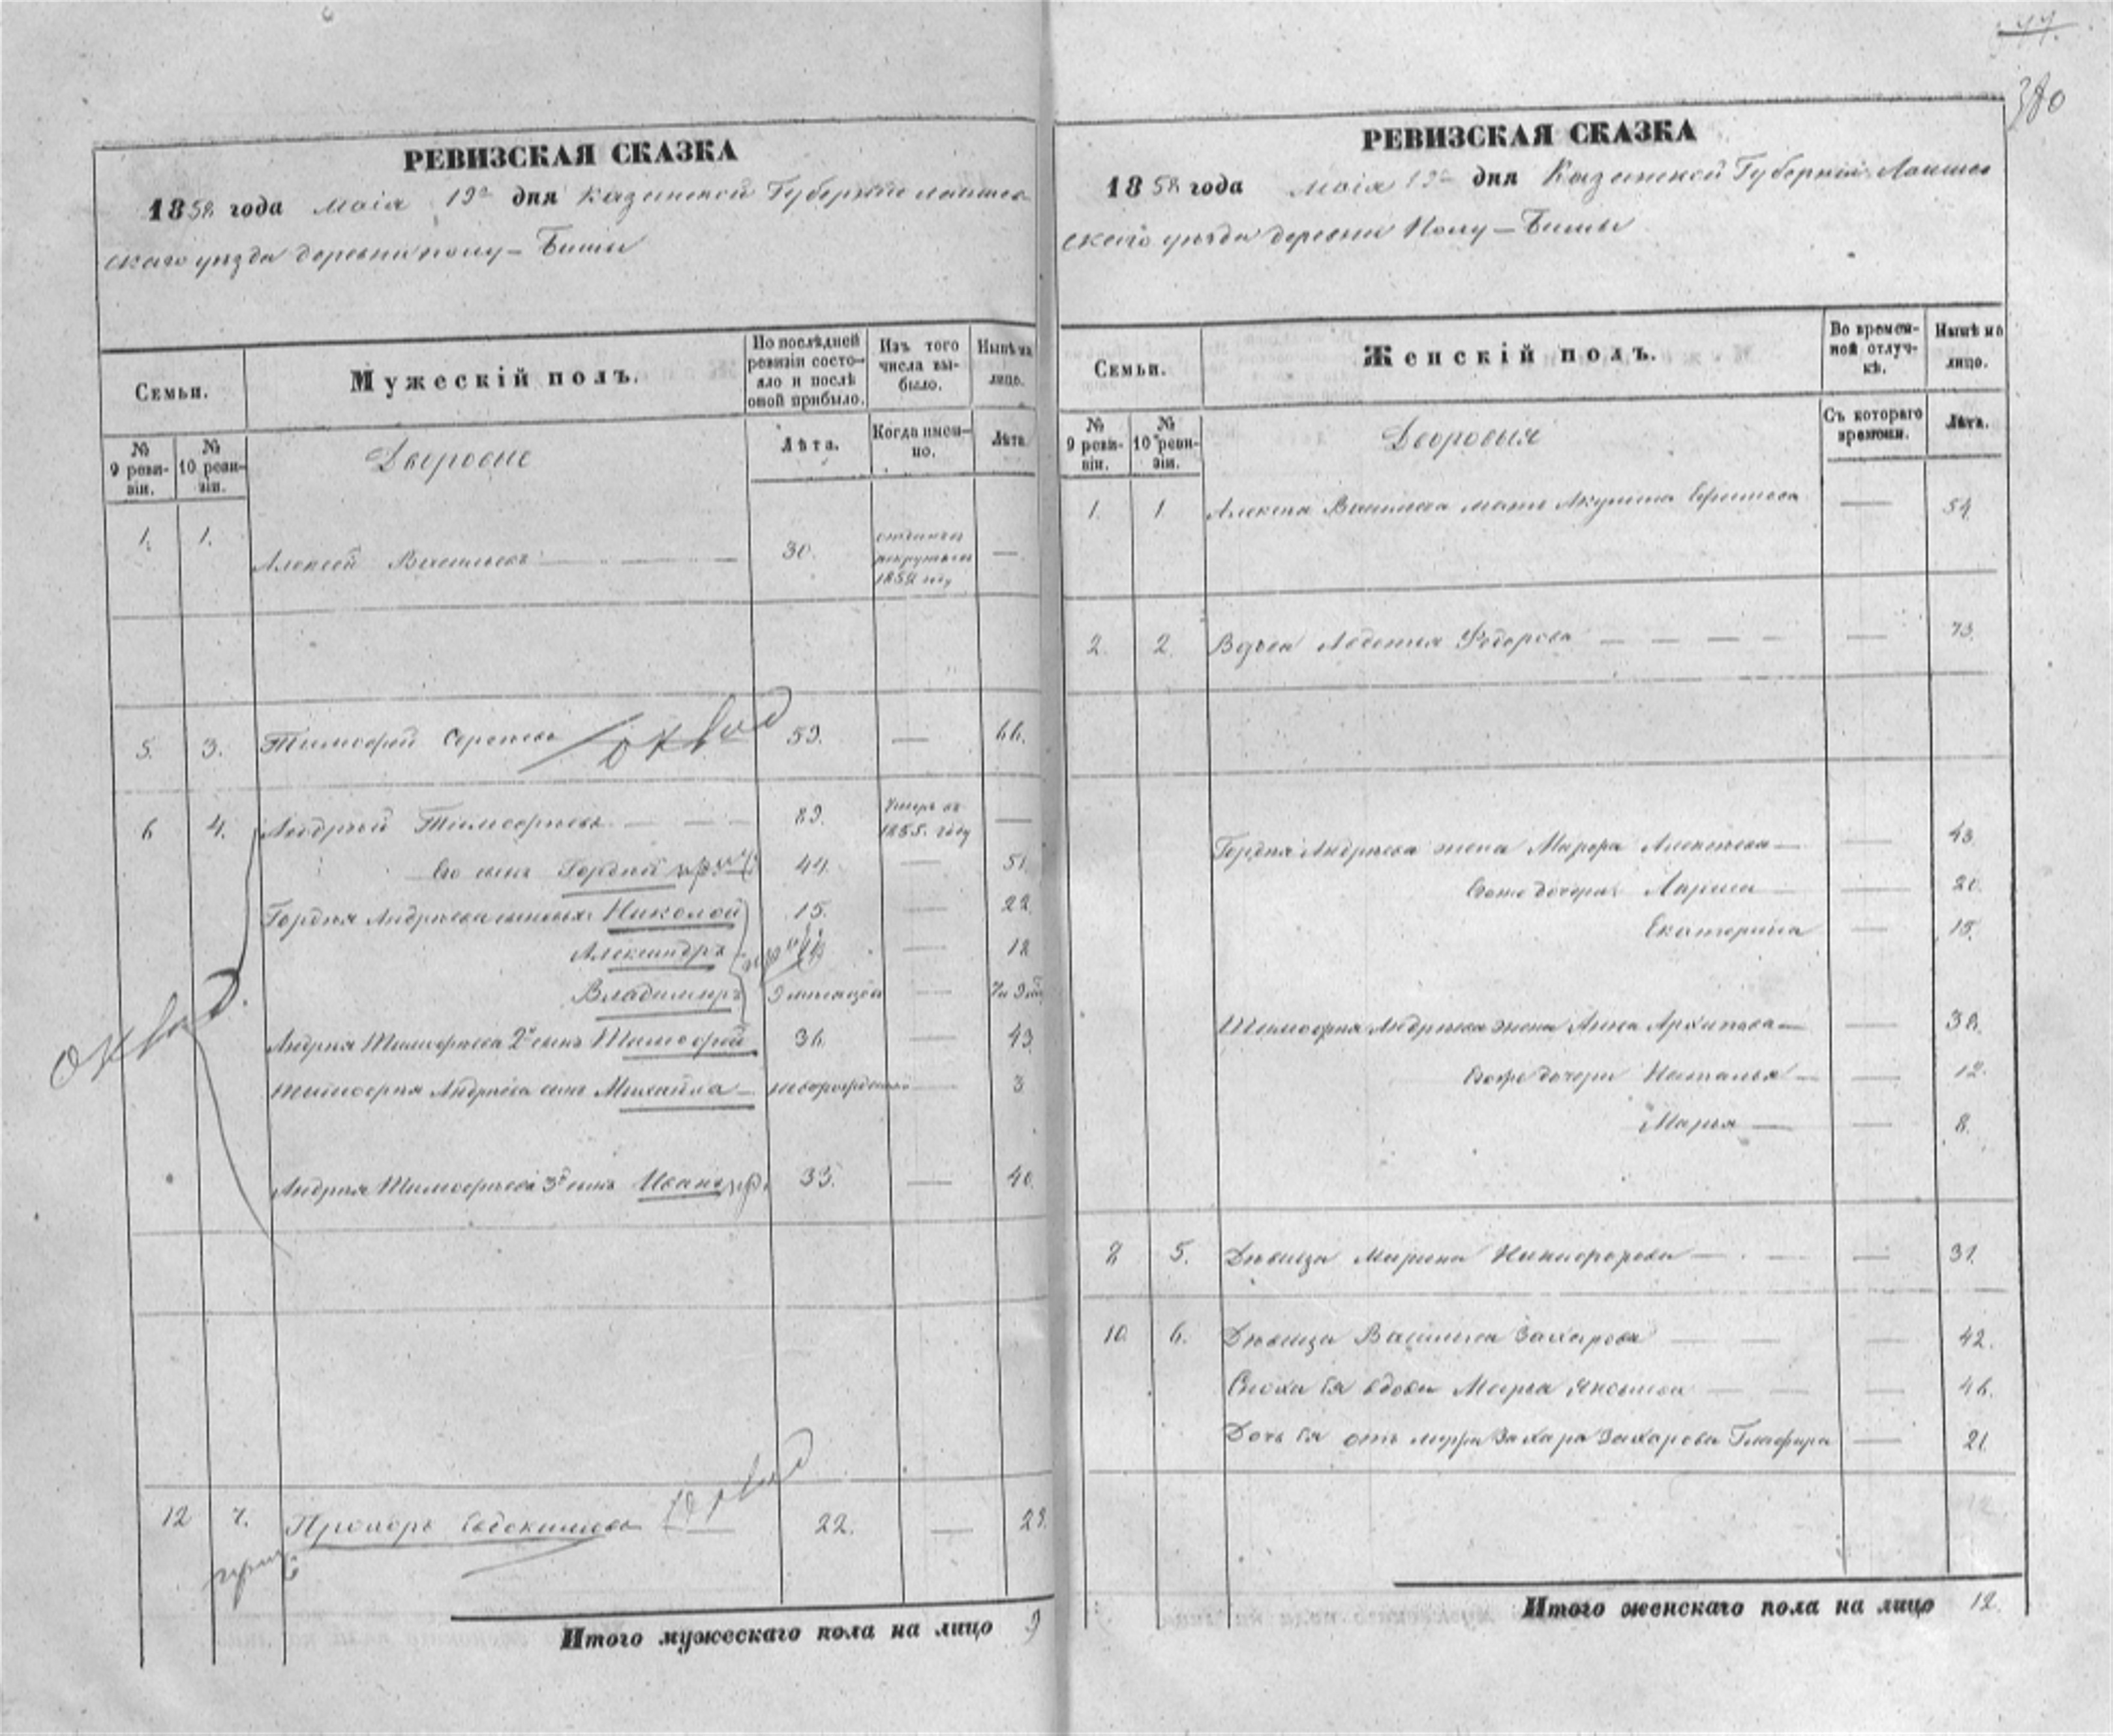 44.
380
РЕВИЗСКАЯ СКАЗКА
1858 года маія 19го дня Казанской Губерніи Лаишев
скаго уезда деревни Полу-Бишы
Семьи.
Мужескій полъ.
По послѣдней ревизіи состояло и послѣ оной прибыло.
Изъ того числа выбыло.
Нынѣ на лицо.
№ 9 ревизіи.
№ 10 ревизіи.
Дворовые
Лѣта.
Когда именно.
Лѣта.
1. 1. Алексей Васильевъ 30. отданъ в рекруты въ 1854 году —
5. 3. Тимофей Сергеевъ оклад 59. — 66.
6 4. Андрѣй Тимофеевъ — — — 89. Умеръ въ 1855. году —
Его сынъ Гордей 44. — 51.
Гордея Андреева сыновья: Николай 15. — 22.
Александръ — 18
Владимиръ 9 месяцевъ —
Андрея Тимофеева 2й сынъ Тимофей 36. — 43.
Тимофея Андреева сынъ Михайла — новорожденъ — 3
Андрея Тимофеева 3й сынъ Иванъ 33. — 40.
оклад.
12 7. Прохоръ Евдокимовъ оклад 22. — 29.
Итого мужескаго пола на лицо 9
РЕВИЗСКАЯ СКАЗКА
1858 года маія 19го дня Казанской Губерніи Лаишев
скаго уѣзда деревни Полу-Бишы
Семьи.
Женскій полъ.
Во временной отлучкѣ.
Нынѣ на лицо.
№ 9 ревизіи.
№ 10 ревизіи.
Дворовыя
Съ котораго времени.
Лѣта.
1. 1 Алексея Васильева мать Акулина Ефимова — 54.
2. 2. Вдова Авдотья Федорова — — — — — 73.
Гордея Андреева жена Марфа Алексеева — — 43.
Егоже дочери Лариса — — 20.
Екатерина — 15.
Тимофея Андреева жена Анна Архипова — — 38.
Егоже дочери Наталья — — 12.
Марья — — 8.
8 5. Дѣвица Марина Никифорова — — — 31.
10. 6. Дѣвица Василиса Захарова — — — 42.
Сноха Ея вдова Марья Яковлева — — — 46.
Дочь Ея отъ мужа Захара Захарова Глафира — 21.
Итого женскаго пола на лицо 12.